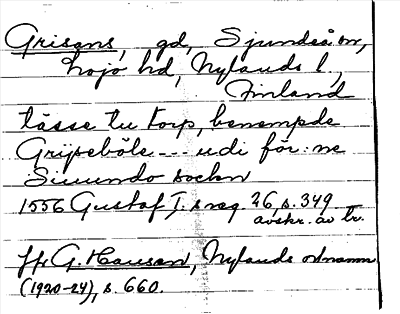 Grisans, gd, Sjundeå sn,
Lojo hd, Nylands l,
Finland
tässe tu torp, benempde
Gripseböle --- udi för:ne
Siuundo socken
1556 Gustaf I:s reg 26, s. 349
avskr. av tr.
fr G. Hausen, Nylands ortnamn
(1920-24), s. 660.